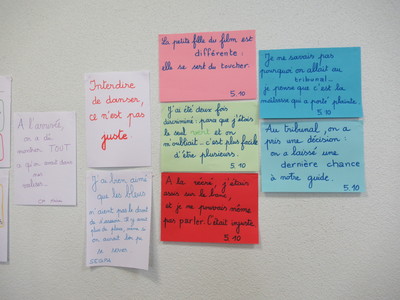 A l'arrivée,
on a dû
montrer TOUT
ce qu'on avait dans
nos
Interdire
de danser,
ce n'est pas
juste
J'ai bien aimé
que les bleus
n'aient pas le droit
La petite fille du film est
différente :
elle se sert du toucher.
5.10
J'ai été deux fois
discriminé : parce que j'étais
le seul vert et on
m'oubliait... c'est plus facile
d'être plusieurs.
5.10
A la récré, j'étais
assis sur le banc,
et je ne pouvais même
pas parler. C'était injuste.
5.10
Je ne savais pas
pourquoi on allait au
tribunal...
je pense que c'est la
maîtresse qui a porté plainte.
5.10
Au tribunal, on a
pris une décision :
on a laissé une
dernière chance
à notre guide.
5.10